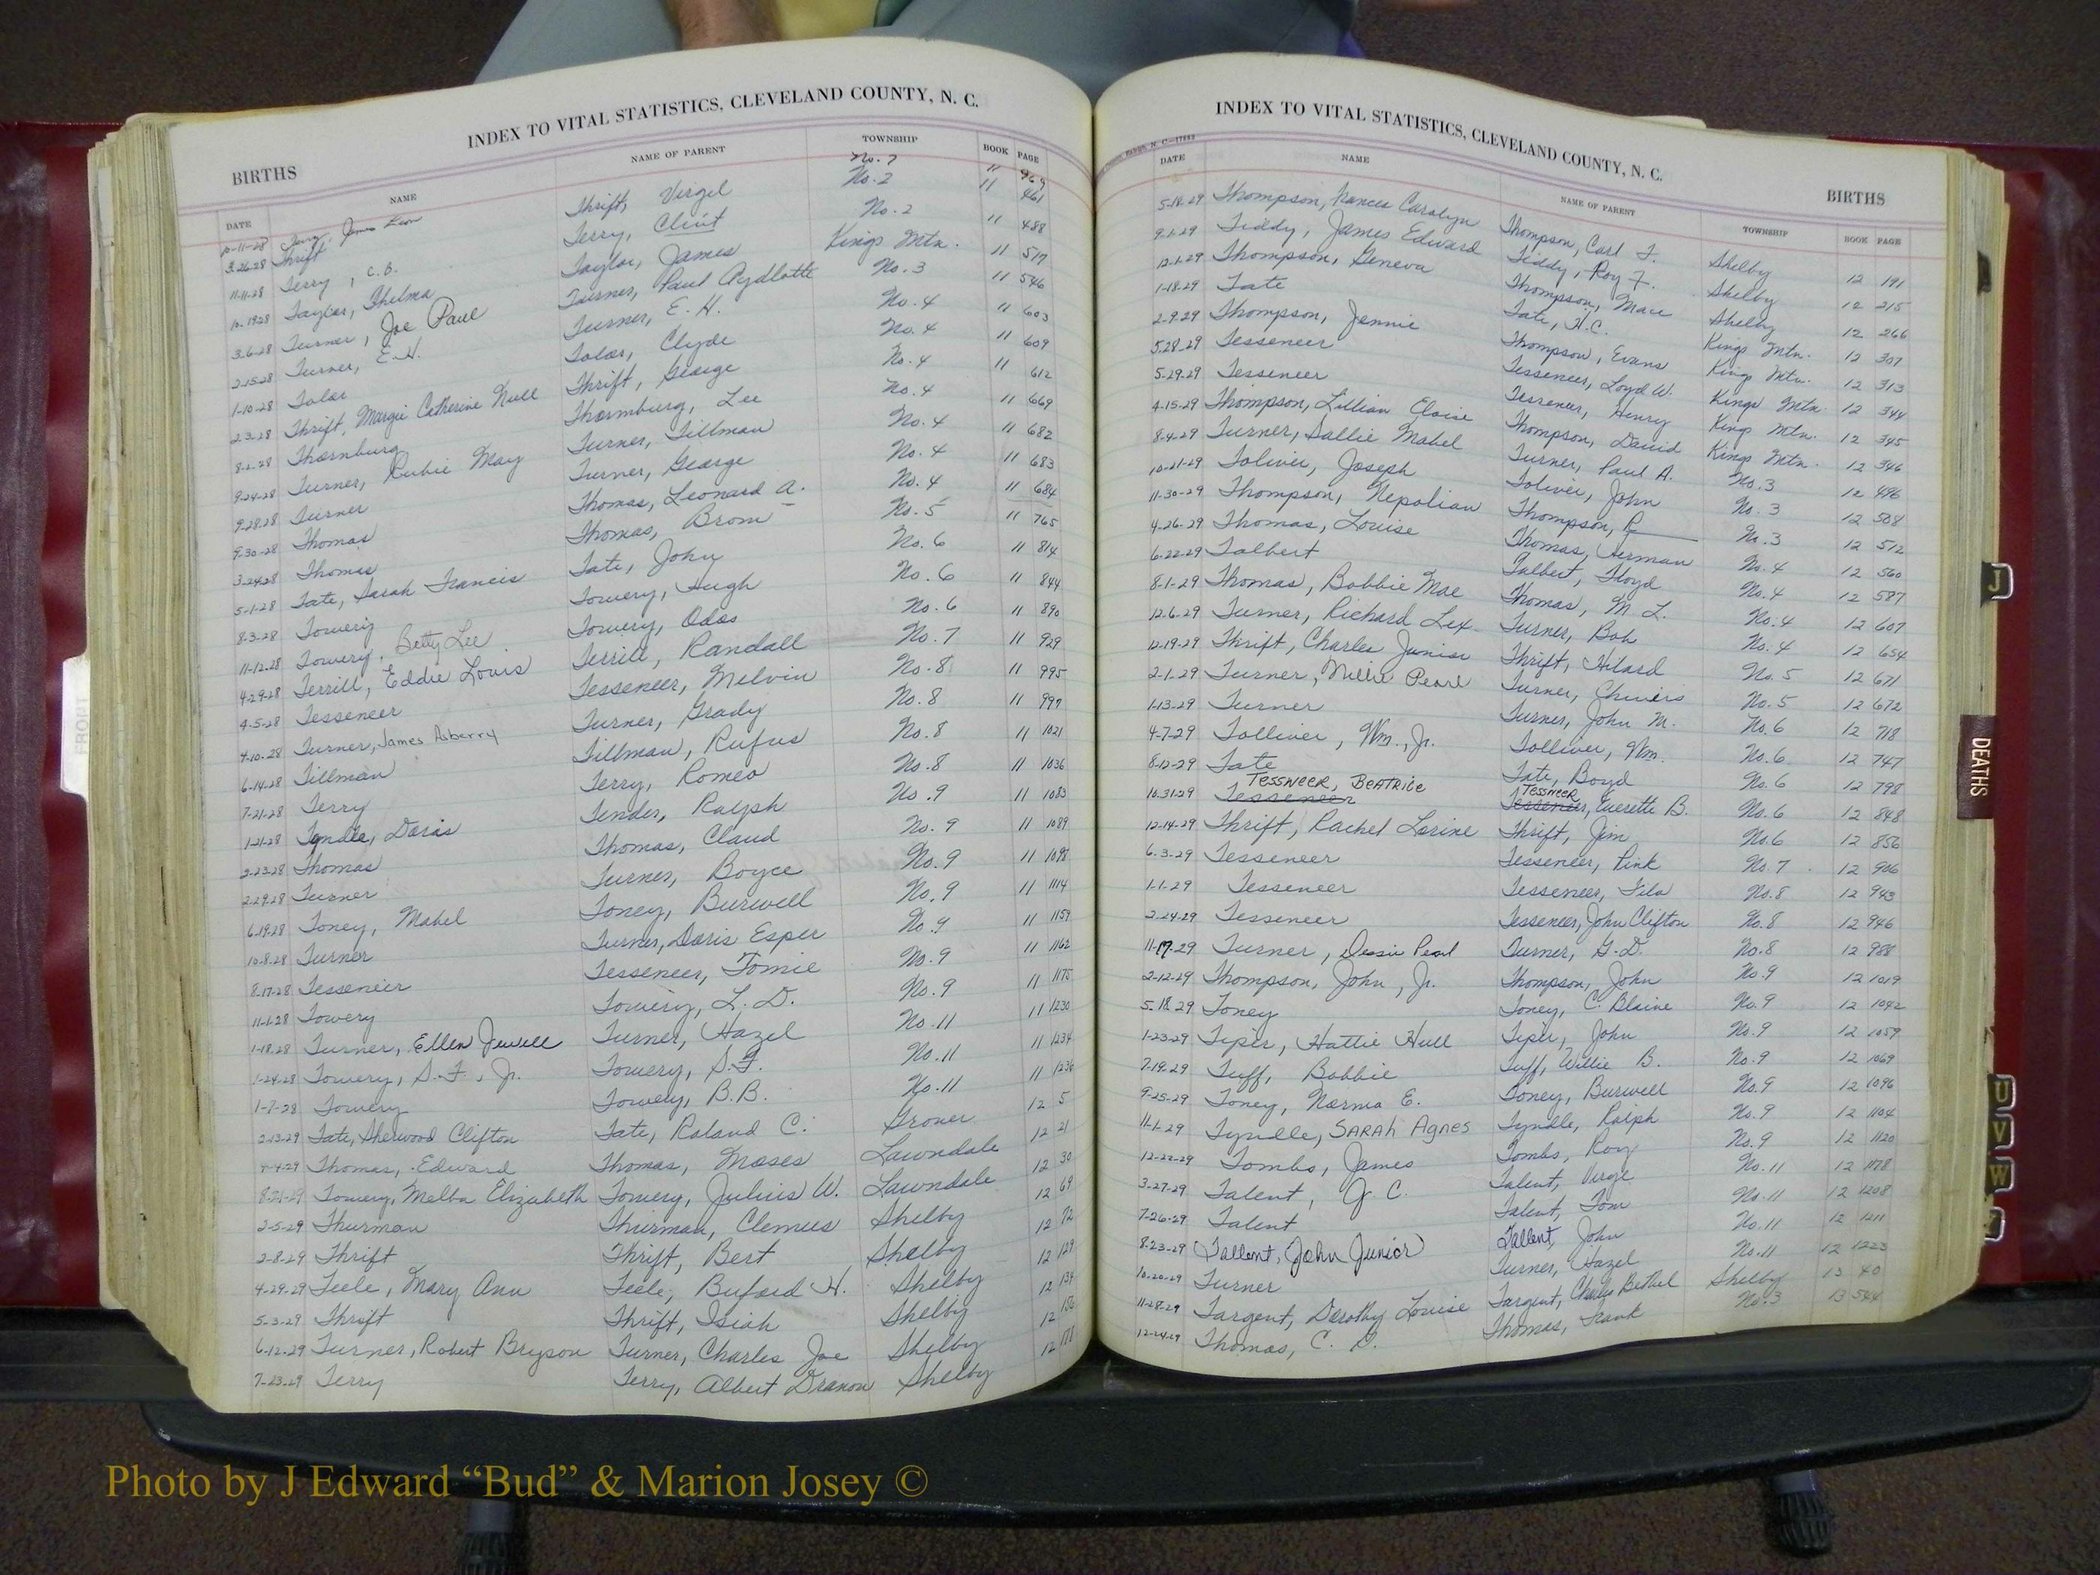 INDEX TO VITAL STATISTICS, CLEVELAND COUNTY, N. C.
BIRTHS
DATE NAME NAME OF PARENT TOWNSHIP BOOK PAGE
No. 7 11 969
3-26-28 Thrift Thrift, Virgil No. 2 11 461
11-11-28 Terry, C. B. Terry, Clint No. 2 11 488
10-19-28 Taylor, Thelma Taylor, James Kings Mtn. 11 517
3-6-28 Turner, Joe Paul Turner, Paul Aydlotte No. 3 11 546
2-15-28 Turner, E. H. Turner, E. H. No. 4 11 603
1-10-28 Tolar Tolar, Clyde No. 4 11 609
2-3-28 Thrift, Margie Catherine Null Thrift, George No. 4 11 612
Thornburg Thornburg, Lee No. 4 11 669
9-24-28 Turner, Rubie May Turner, Tillman No. 4 11 682
9-28-28 Turner Turner, George No. 4 11 683
9-30-28 Thomas Thomas, Leonard A. No. 4 11 684
3-24-28 Thomas Thomas, Brom No. 5 11 765
5-1-28 Tate, Sarah Francis Tate, John No. 6 11 814
8-3-28 Towery Towery, Hugh No. 6 11 844
11-12-28 Towery, Betty Lee Towery, Odas No. 6 11 890
4-29-28 Terrill, Eddie Louis Terrill, Randall No. 7 11 929
4-5-28 Tesseneer Tesseneer, Melvin No. 8 11 995
4-10-28 Turner, James Asberry Turner, Grady No. 8 11 997
6-14-28 Tillman Tillman, Rufus No. 8 11 1021
7-21-28 Terry Terry, Romeo No. 8 11 1036
1-21-28 Tyndle, Doris Tender, Ralph No. 9 11 1083
2-23-28 Thomas Thomas, Claud No. 9 11 1089
2-29-28 Turner Turner, Boyce No. 9 11 1098
6-19-28 Toney, Mabel Toney, Burwell No. 9 11 1114
10-8-28 Turner Turner, Doris Esper No. 9 11 1159
8-17-28 Tesseneer Tesseneer, Tomie No. 9 11 1162
11-1-28 Towery Towery, L. D. No. 9 11 1175
1-18-28 Turner, Ellen Jewell Turner, Hazel No. 11 11 1230
1-24-28 Towery, S. F., Jr. Towery, S. F. No. 11 11 1234
1-7-28 Towery Towery, B. B. No. 11 11 1236
2-13-29 Tate, Sherwood Clifton Tate, Roland C. Grover 12 5
4-4-29 Thomas, Edward Thomas, Moses Lawndale 12 21
8-21-29 Towery, Melba Elizabeth Towery, Julius W. Lawndale 12 30
2-5-29 Thurman Thurman, Clemus Shelby 12 69
2-8-29 Thrift Thrift, Bert Shelby 12 72
4-29-29 Teele, Mary Ann Teele, Buford H. Shelby 12 129
5-3-29 Thrift Thrift, Isiah Shelby 12 134
6-12-29 Turner, Robert Bryson Turner, Charles Joe Shelby 12 156
7-23-29 Terry Terry, Albert Dranon Shelby 12 178
INDEX TO VITAL STATISTICS, CLEVELAND COUNTY, N. C.
BIRTHS
DATE NAME NAME OF PARENT TOWNSHIP BOOK PAGE
5-18-29 Thompson, Frances Carolyn Thompson, Carl F. Shelby 12 191
9-1-29 Tiddy, James Edward Tiddy, Roy F. Shelby 12 215
12-1-29 Thompson, Geneva Thompson, Mace Shelby 12 266
1-18-29 Tate Tate, H. C. Kings Mtn. 12 307
2-9-29 Thompson, Jennie Thompson, Evans Kings Mtn. 12 313
5-28-29 Tesseneer Tesseneer, Loyd W. Kings Mtn. 12 344
5-29-29 Tesseneer Tesseneer, Henry Kings Mtn. 12 345
4-15-29 Thompson, Lillian Eloise Thompson, David Kings Mtn. 12 346
8-4-29 Turner, Sallie Mabel Turner, Paul A. No. 3 12 496
10-21-29 Toliver, Joseph Toliver, John No. 3 12 508
11-30-29 Thompson, Nepolian Thompson, R No. 3 12 512
4-26-29 Thomas, Louise Thomas, Herman No. 4 12 560
6-22-29 Talbert Talbert, Floyd No. 4 12 587
8-1-29 Thomas, Bobbie Mae Thomas, M. L. No. 4 12 607
12-6-29 Turner, Richard Lex Turner, Bob No. 4 12 654
12-19-29 Thrift, Charles Junior Thrift, Hilard No. 5 12 671
2-1-29 Turner, Nellie Pearl Turner, Chivers No. 5 12 672
1-13-29 Turner Turner, John M. No. 6 12 718
4-7-29 Tolliver, Wm., Jr. Tolliver, Wm. No. 6 12 747
8-12-29 Tate Tate, Boyd No. 6 12 798
TESSNEER, BEATRICE TESSNEER
10-31-29 Tesseneer Tesseneer, Everette B. No. 6 12 848
12-14-29 Thrift, Rachel Lorine Thrift, Jim No. 6 12 856
6-3-29 Tesseneer Tesseneer, Pink No. 7 12 906
1-1-29 Tesseneer Tesseneer, Fila No. 8 12 943
2-24-29 Tesseneer Tesseneer, John Clifton No. 8 12 946
11-17-29 Turner, Dessie Pearl Turner, G. D. No. 8 12 988
2-12-29 Thompson, John, Jr. Thompson, John No. 9 12 1019
5-18-29 Toney Toney, C. Blaine No. 9 12 1042
1-23-29 Tiper, Hattie Hull Tiper, John No. 9 12 1059
7-19-29 Tuff, Bobbie Tuff, Willie B. No. 9 12 1069
9-25-29 Toney, Norma E. Toney, Burwell No. 9 12 1096
11-1-29 Tyndle, SARAh Agnes Tyndle, Ralph No. 9 12 1104
12-22-29 Tombs, James Tombs, Roy No. 9 12 1120
3-27-29 Talent, J. C. Talent, Virge No. 11 12 1178
7-26-29 Talent Talent, Tom No. 11 12 1208
8-23-29 Tallent, John Junior Tallent, John No. 11 12 1211
10-20-29 Turner Turner, Hazel No. 11 12 1223
11-28-29 Targent, Dorothy Louise Targent, Charlye Bethel Shelby 13 40
12-14-29 Thomas, C. D. Thomas, Frank No. 3 13 544
FRONT
J
DEATHS
U
V
W
Photo by J Edward “Bud” & Marion Josey ©